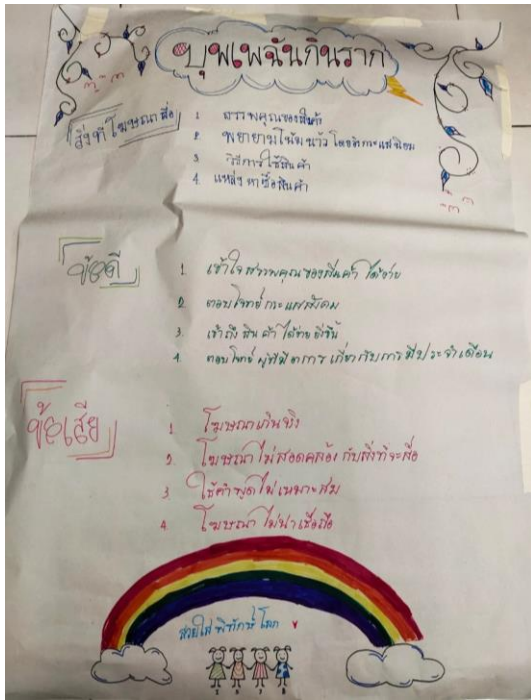 บุพเพฉันกินราก
สิ่งที่โฆษณาสื่อ
1 สรรพคุณของสินค้า
2 พยายามโน้มน้าวโดยอิงกระแสนิยม
3 วิธีการใช้สินค้า
4 แหล่งหาซื้อสินค้า
ข้อดี
1 เข้าใจสรรพคุณของสินค้าได้ง่าย
2 ตอบโจทย์กระแสสังคม
3. เข้าถึงสินค้าได้ง่ายยิ่งขึ้น
4. ตอบโจทย์ผู้ที่มีอาการเกี่ยวกับการมีประจำเดือน
ข้อเสีย
1 โฆษณาเกินจริง
2. โฆษณาไม่สอดคล้องกับสิ่งที่จะสื่อ
3 ใช้คำพูดไม่เหมาะสม
4. โฆษณาไม่น่าเชื่อถือ
สวยใสพิทักษ์โลก